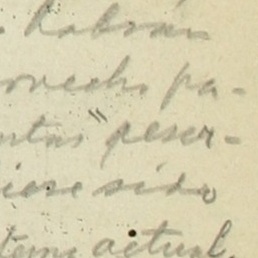 habían
ovecho pa-
ntas" peser-
iese sido
tema actual.